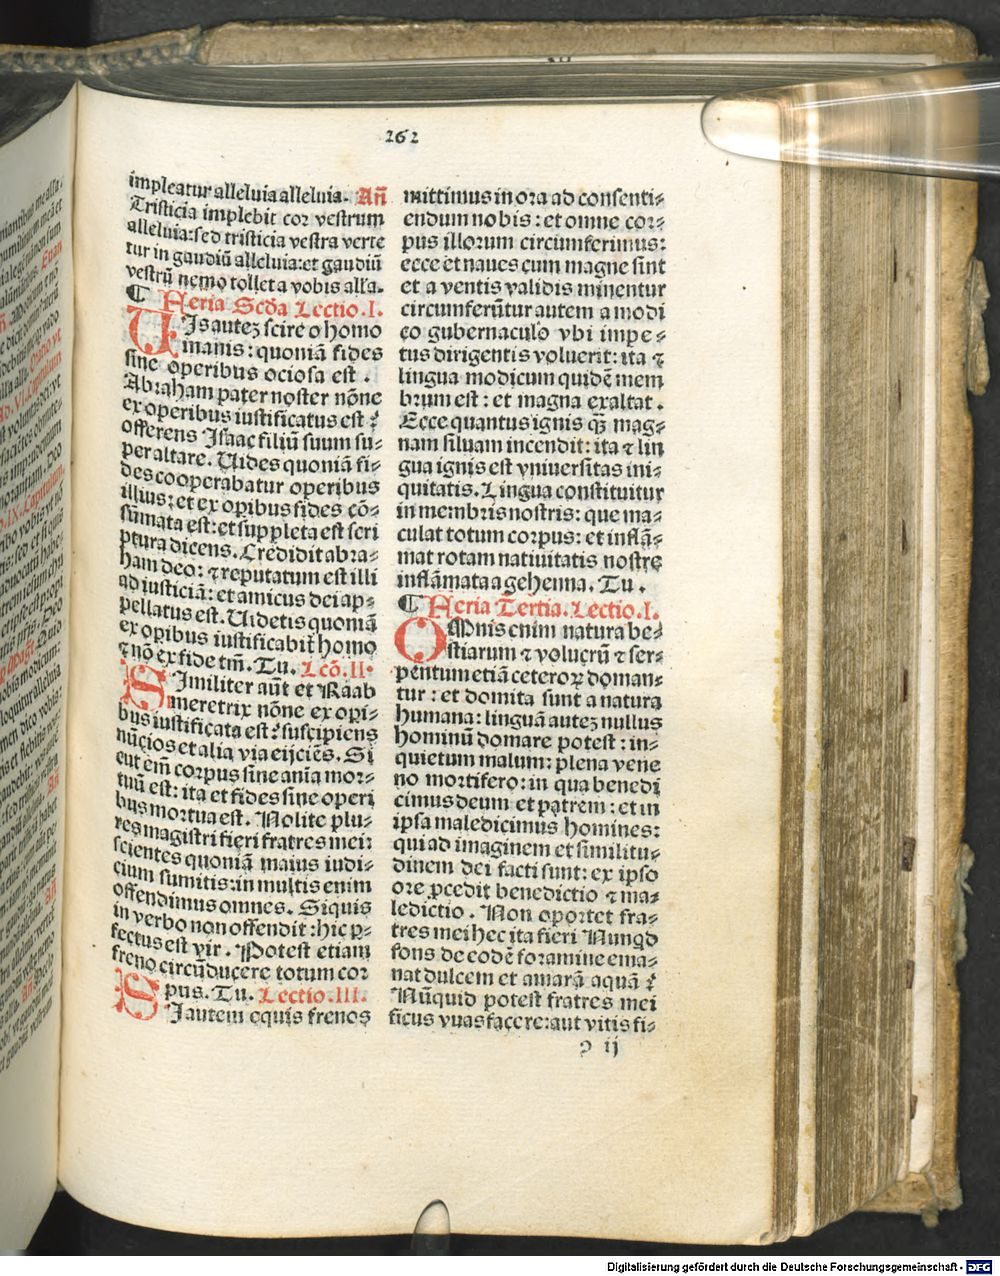 262
impleatur alleluia alleluia. Añ
Tristicia implebit cor vestrum
alleluia: sed tristicia vestra verte
tur in gaudiũ alleluia: et gaudiũ
vestrũ nemo tollet a vobis alľa.
¶ Feria Scďa Lectio .I.
UIs auteʒ scire o homo
inanis: quoniã fides
sine operibus ociosa est.
Abraham pater noster nõne
ex operibus iustificatus est
offerens Isaac filiũ suum su⸗
per altare. Uides quoniã fi⸗
des cooperabatur operibus
illius: et ex oꝑibus fides cõ⸗
sũmata est: et suppleta est scri
ptura dicens. Credidit abra⸗
ham deo: ⁊ reputatum est illi
ad iusticiã: et amicus dei ap⸗
pellatus est. Uidetis quoniã
ex oꝑibus iustificabit̃ homo
⁊ nõ ex fide tm̃. Tu. Lcõ. II.
SImiliter aũt et Raab
meretrix nõne ex oꝑi⸗
bus iustificata est: suscipiens
nũcios et alia via eijciẽs. Si
cut em̃ corpus sine anĩa mor⸗
tuũ est: ita et fides sine operi
bus mortua est. Nolite plu⸗
res magistri fieri fratres mei:
scientes quoniã maius iudi⸗
cium sumitis: in multis enim
offendimus omnes. Si quis
in verbo non offendit: hic ꝑ⸗
fectus est vir. Potest etiam
freno circũducere totum cor
pus. Tu. Lectio .III.
SI autem equis frenos
mittimus in ora ad consenti⸗
endum nobis: et omne cor⸗
pus illorum circumferimus:
ecce et naues cum magne sint
et a ventis validis minentur
circumferũtur autem a modi
co gubernaculo vbi impe⸗
tus dirigentis voluerit: ita ⁊
lingua modicum quidẽ mem
brum est: et magna exaltat.
Ecce quantus ignis q̃ȝ mag⸗
nam siluam incendit: ita ⁊ lin
gua ignis est vniuersitas ini⸗
quitatis. Lingua constituitur
in membris nostris: que ma⸗
culat totum corpus: et inflã⸗
mat rotam natiuitatis nostre
inflãmata a gehenna. Tu.
¶ Feria Tertia. Lectio .I.
OMnis enim natura be⸗
stiarum ⁊ volucrũ ⁊ ser⸗
pentum etiã ceteroꝝ doman⸗
tur: et domita sunt a natura
humana: linguã auteʒ nullus
hominũ domare potest: in⸗
quietum malum: plena vene
no mortifero: in qua benedi
cimus deum et patrem: et in
ipsa maledicimus homines:
qui ad imaginem et similitu⸗
dinem dei facti sunt: ex ipso
ore ꝓcedit benedictio ⁊ ma⸗
ledictio. Non oportet fra⸗
tres mei hec ita fieri Nunqd
fons de eodẽ foramine ema⸗
nat dulcem et amarã aquã
Nũquid potest fratres mei
ficus vuas facere: aut vitis fi⸗
ij
Digitalisierung gefördert durch die Deutsche Forschungsgemeinschaft - DFG